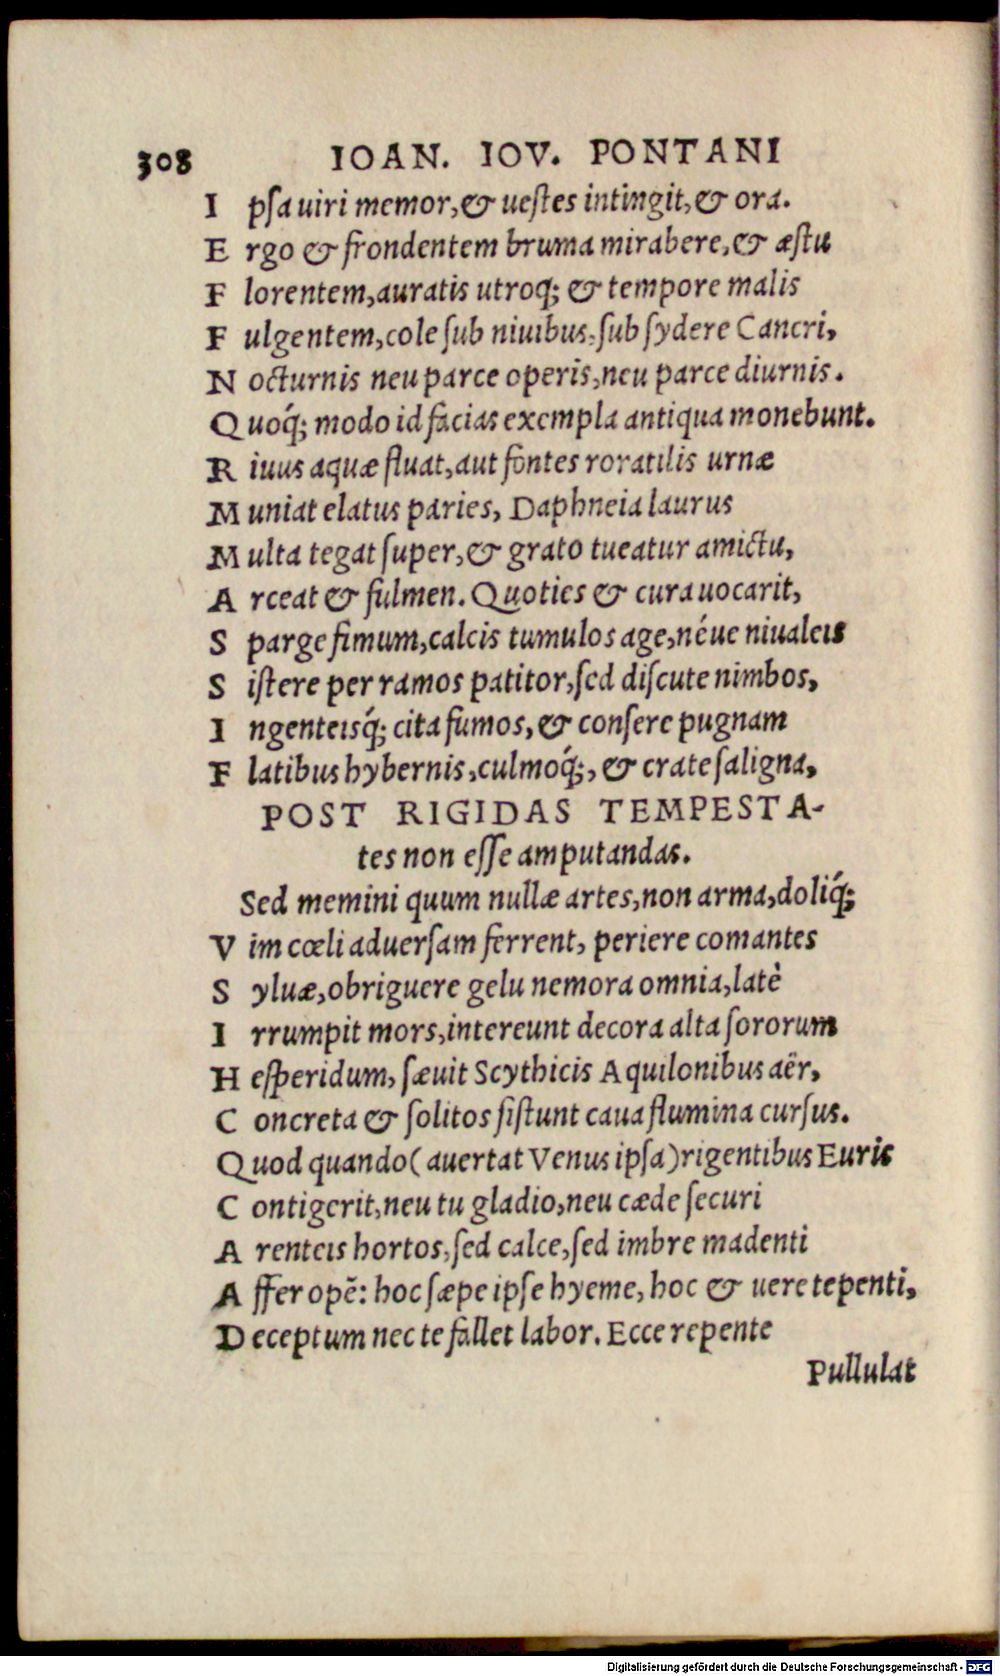 308 IOAN. IOV. PONTANI
I psa uiri memor,& uestes intingit,& ora.
E rgo & frondentem bruma mirabere,& æstu
F lorentem,auratis utroq; & tempore malis
F ulgentem,cole sub niuibus,sub sydere Cancri,
N octurnis neu parce operis,neu parce diurnis.
Q uoq́; modo id facias exempla antiqua monebunt.
R iuus aquæ fluat,aut fontes roratilis urnæ
M uniat elatus paries, Daphneia laurus
M ulta tegat super,& grato tueatur amictu,
A rceat & fulmen. Quoties & cura uocarit,
S parge fimum,calcis tumulos age,néue niualeis
S istere per ramos patitor,sed discute nimbos,
I ngenteisq́; cita fumos, & consere pugnam
F latibus hybernis,culmoq́;, & crate saligna,
POST RIGIDAS TEMPESTA-
tes non esse amputandas.
Sed memini quum nullæ artes,non arma,doliq́;
V im cœli aduersam ferrent, periere comantes
S yluæ,obriguere gelu nemora omnia,latè
I rrumpit mors,intereunt decora alta sororum
H esperidum, sæuit Scythicis Aquilonibus aër,
C oncreta & solitos sistunt caua flumina cursus.
Quod quando( auertat Venus ipsa )rigentibus Euris
C ontigerit,neu tu gladio,neu cæde securi
A renteis hortos,sed calce,sed imbre madenti
A ffer opẽ: hoc sæpe ipse hyeme, hoc & uere tepenti,
D eceptum nec te fallet labor. Ecce repente
Pullulat
Digitalisierung gefördert durch die Deutsche Forschungsgemeinschaft - DFG